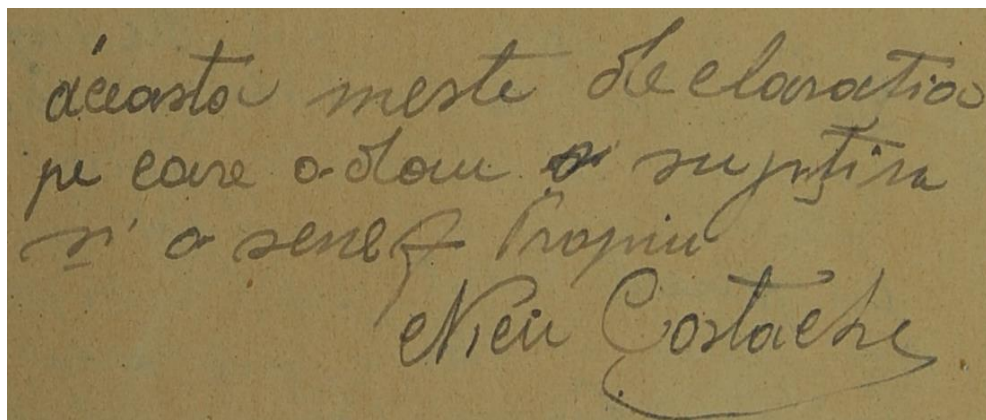 aceasta meste declaratia
pe care o dau si suptin
si o semez Propriu
Nicu Costache